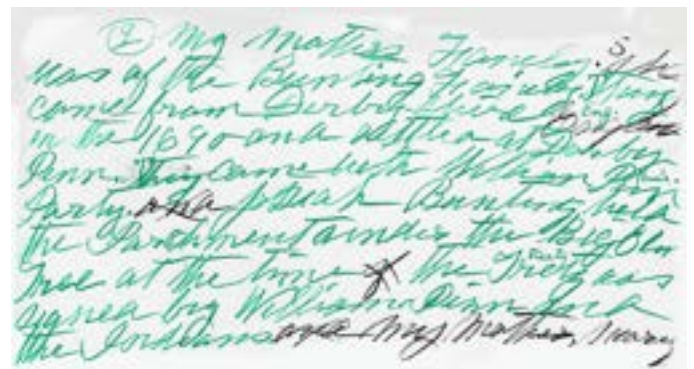 ② My Mothers Family. She
was of the Bunting Family. They
came from Derbyshire England
in the 1690 and settled at Darby
Penn. They came with William
Party. and Bunting held
the Parchment under the Big Elm
tree at the time of the Treaty was
signed by William Penn and
the Indians and My Mother, Mary